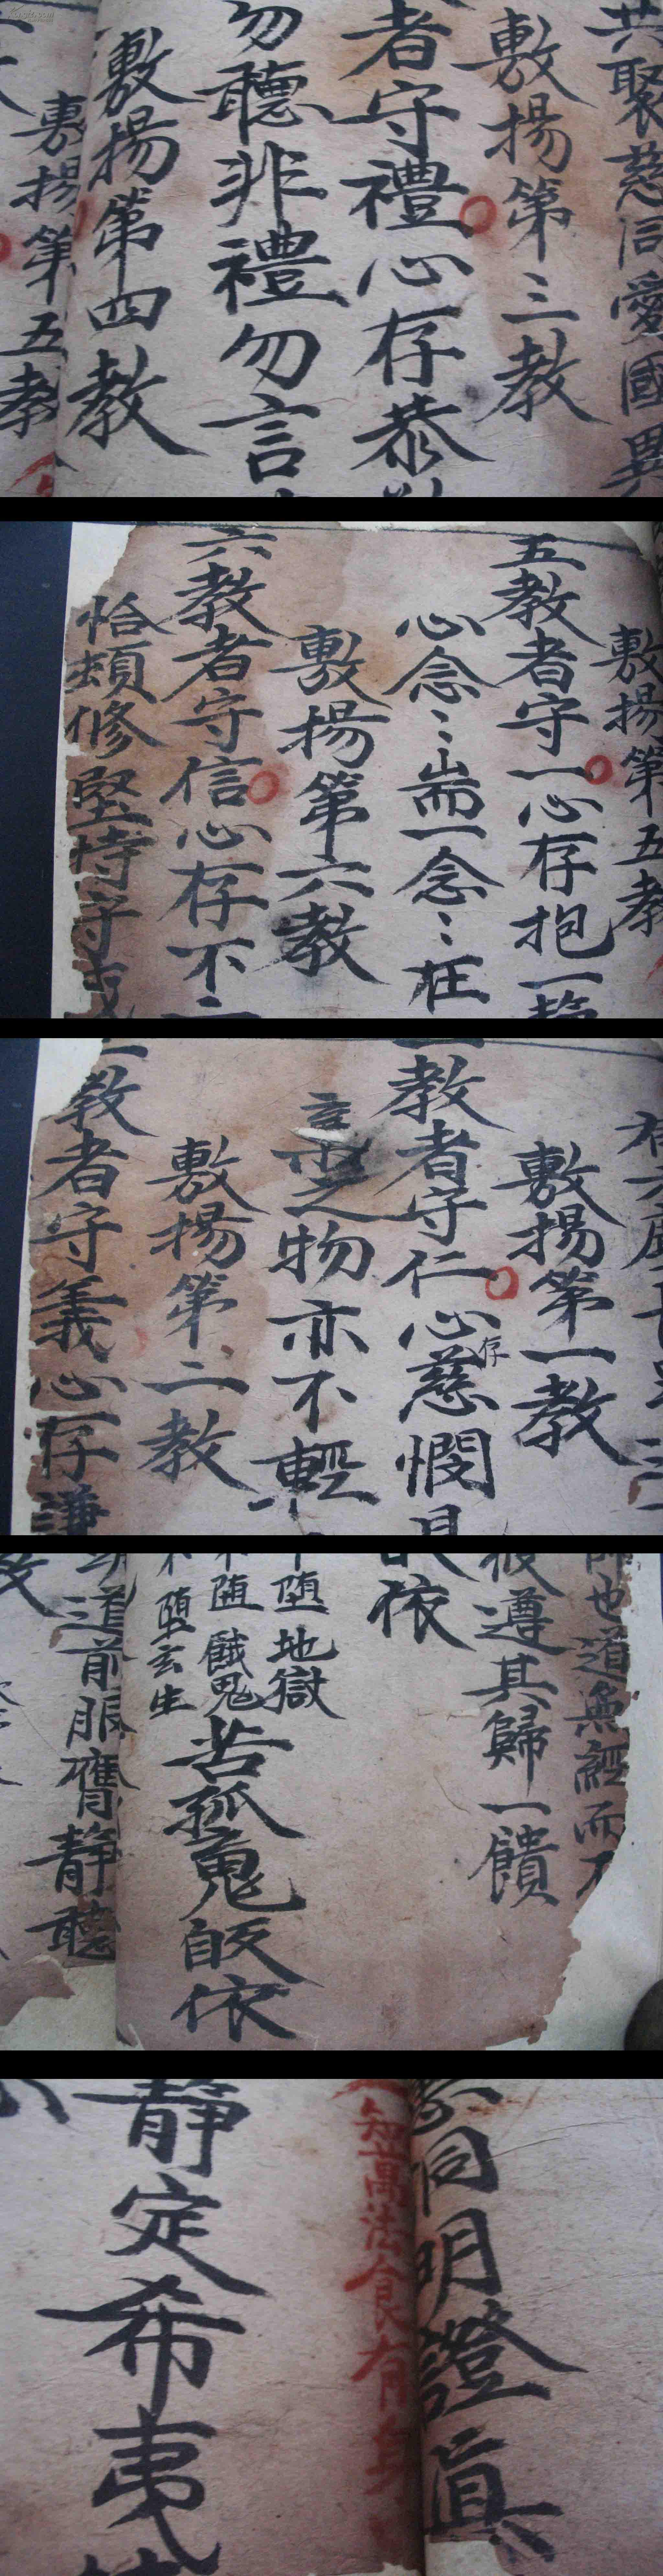 共聚慈同愛國異
敷揚第三教
者守禮心存恭
勿聽非禮勿言
敷揚第四教
敷揚第五教
敷揚第五教
五教者守一心存抱一
心念〻耑一念〻在
敷揚第六教
六教者守信心存不二
恰頻修堅持守
敷揚第一教
教者守仁心存慈憫
之物亦不輕
敷揚第二教
教者守義心存謙
師也道無經而不
彼遵其歸一饋
依
墮地獄
随餓鬼
墮玄生
苦孤魂皈依
道前服膺靜聽
同明證真
知萬法食有
靜定希夷